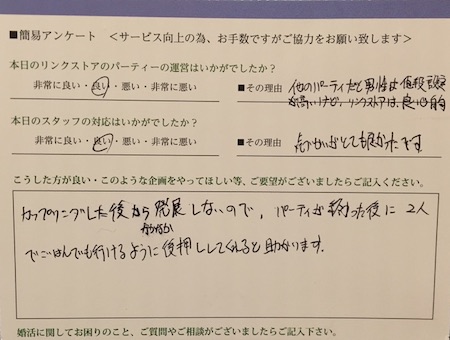 ■簡易アンケート ＜サービス向上の為、お手数ですがご協力をお願い致します＞
本日のリンクストアのパーティーの運営はいかがでしたか？
非常に良い・良い・悪い・非常に悪い
■その理由 他のパーティだと男性は値段設定
が高いけど、リンクストアは、良心的
本日のスタッフの対応はいかがでしたか？
非常に良い・良い・悪い・非常に悪い
■その理由 気づかいがとても良かったです
こうした方が良い・このような企画をやってほしい等、ご要望がございましたらご記入ください。
カップリングした後から発展しないので、パーティが終わった後に2人
なかなか
でごはんでも行けるように後押ししてくれると助かります。
婚活に関してお困りのこと、ご質問やご相談がございましたらご記入下さい。